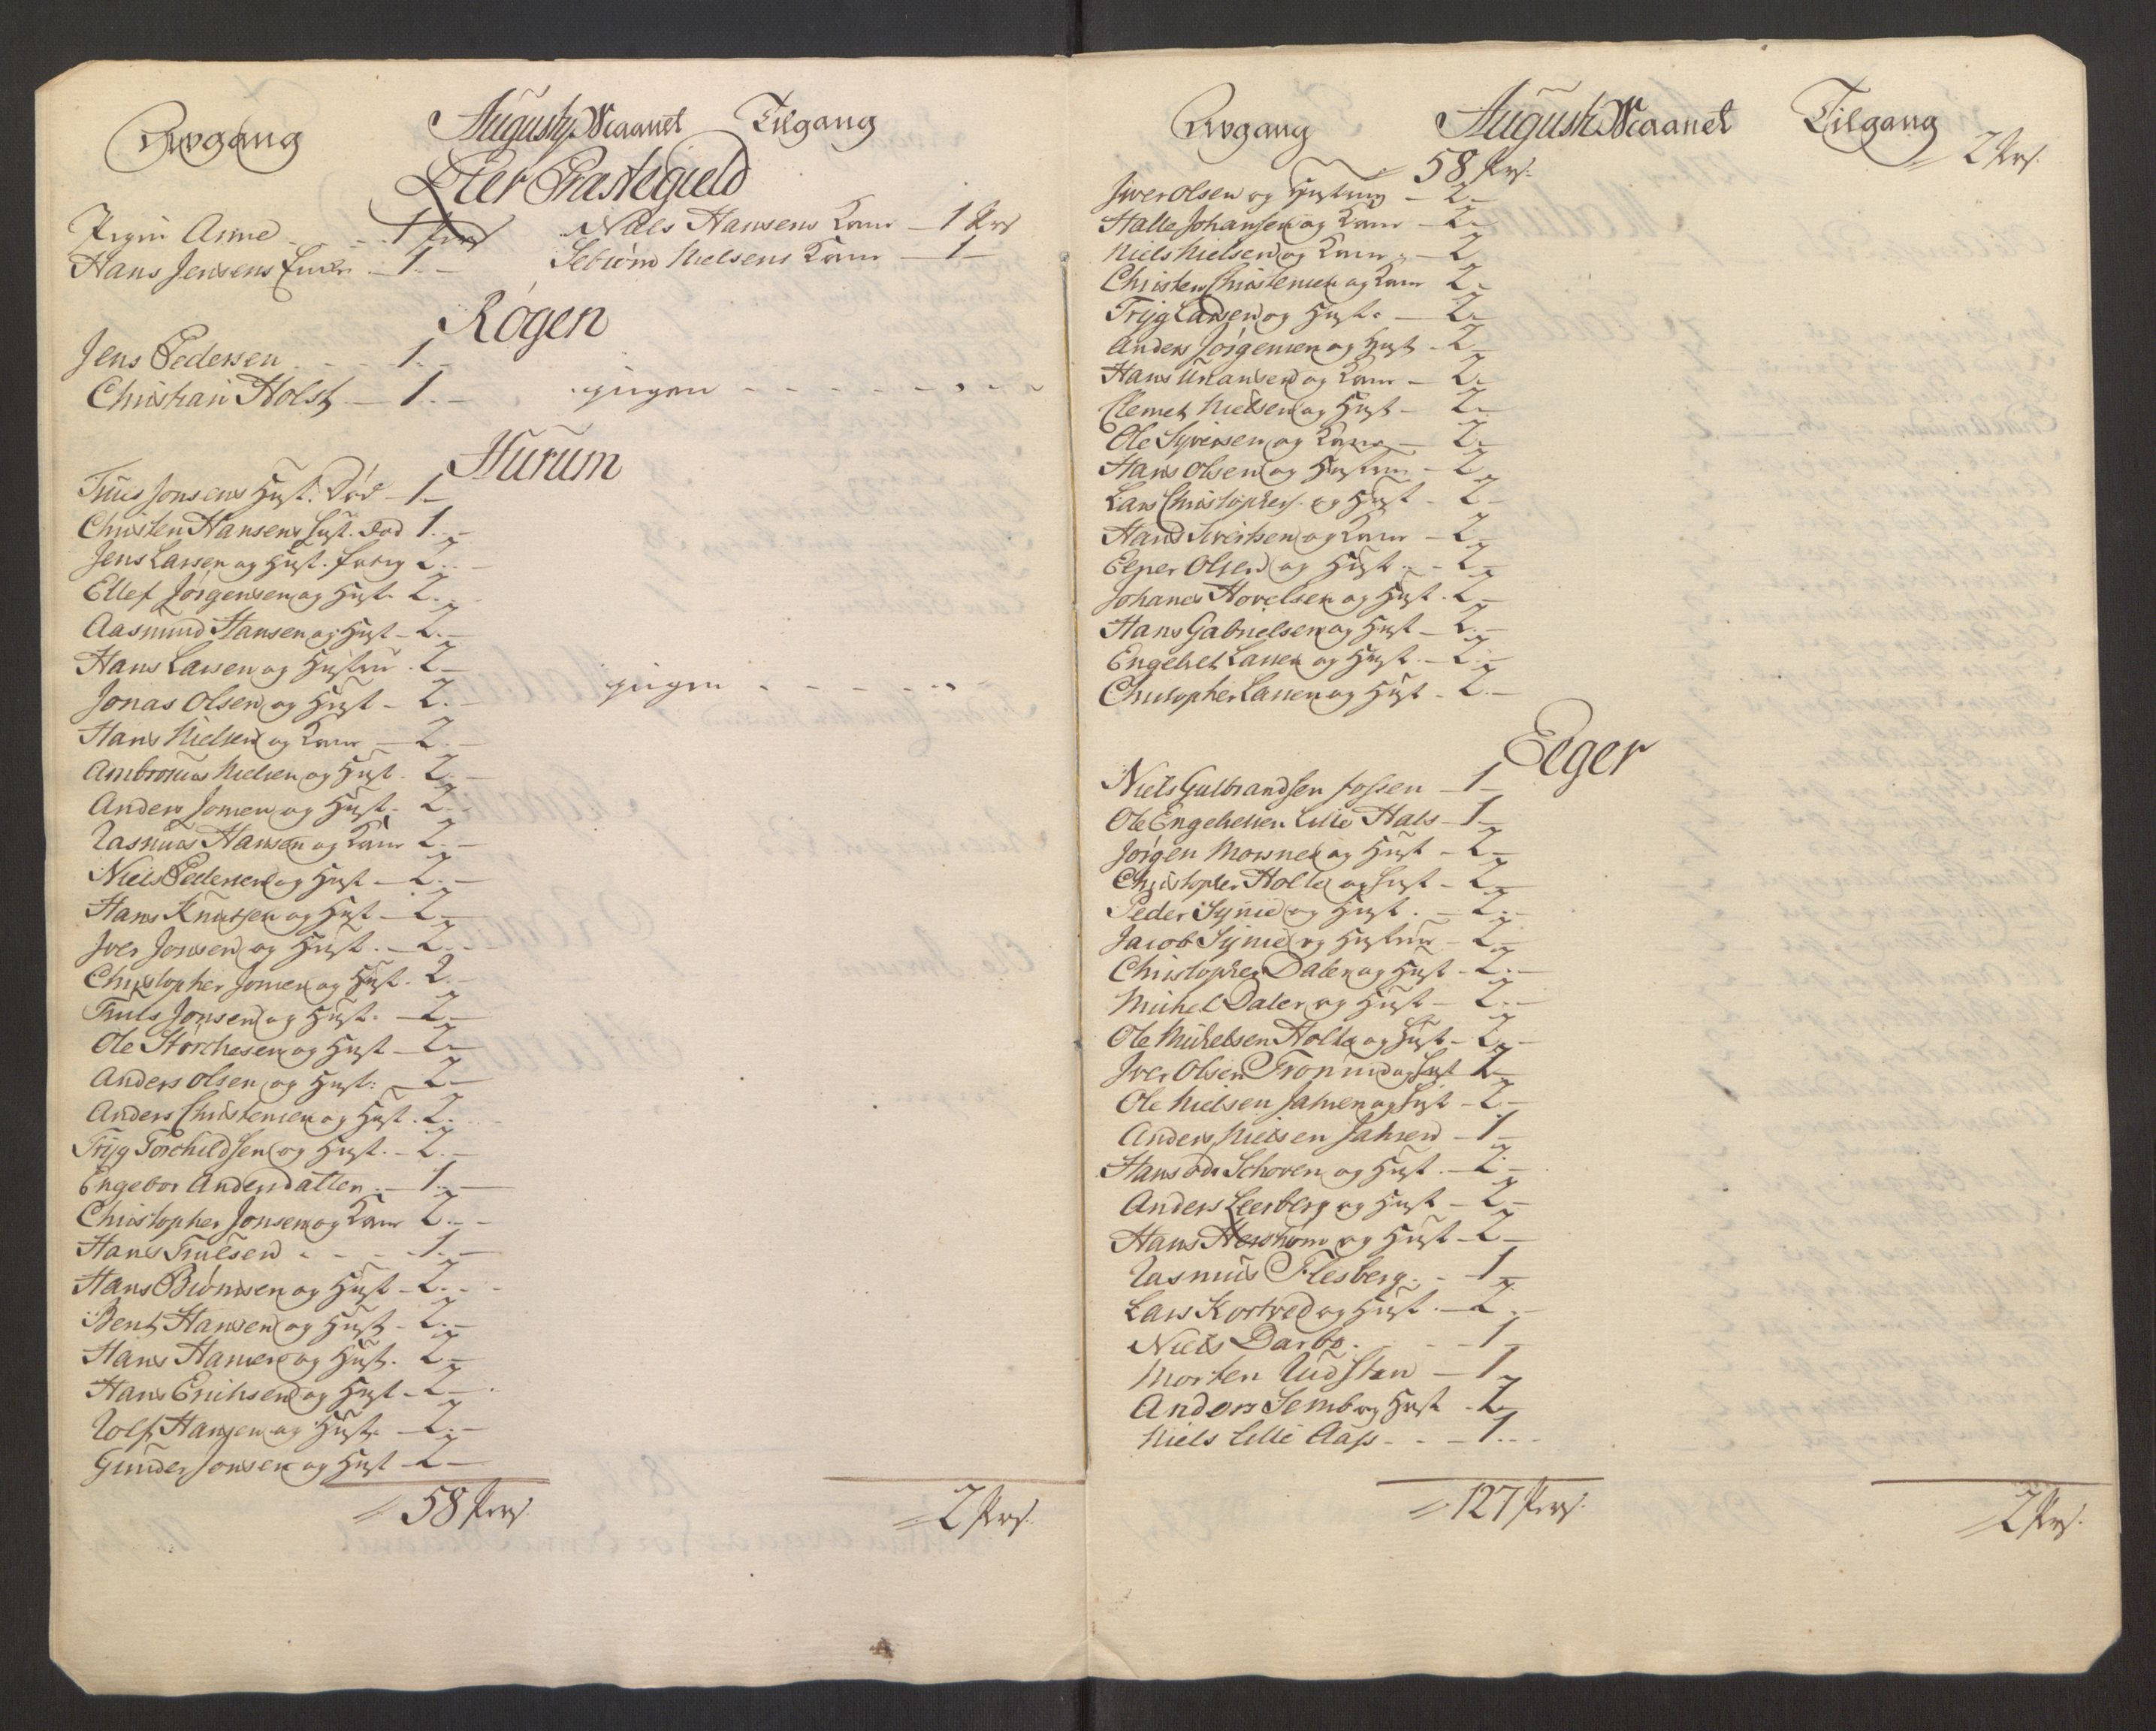 Avgang Augusty Maanet Tilgang
Lier Præstegield
Pigen Anne - - 1 Pers Niels Hansens Kone - 1 Pers
Hans Jensens Encke - 1 - Sebiørn Nielsens Kone - 1 -
Røgen
Jens Pedersen - - 1 -
Christian Holst - 1 - ingen - - - - - - -
Hurum
Truls Jonsens Hust. død - 1 -
Christen Hansens Hust. død 1 -
Jens Larsen og Hust. 2 -
Ellef Jørgensen og Hust. 2 -
Aasmund Hansen og Hust - 2 -
Hans Larsen og Hustru - 2 -
Jonas Olsen og Hust - 2 - ingen - - - - - -
Hans Nielsen og Kone - 2 -
Ambrosius Nielsen og Hust. 2 -
Anders Jonsen og Hust. 2 -
Rasmus Hansen og Kone 2 -
Niels Pedersen og Hust - 2 -
Hans Knutsen og Hust - 2 -
Iver Jonsen og Hust. - 2 -
Christopher Jonsen og Hust. 2 -
Truls Jonsen og Hust. - 2 -
Ole Størchesen og Hust - 2 -
Anders Olsen og Hust: - 2 -
Anders Christensen og Hust. 2 -
Tryg Torchildsen og Hust. - 2 -
Engebor Andersdatter - 1 -
Christopher Jonsen og Kone 2 -
Hans Trulsen - - - 1 -
Hans Biørnsen og Hust - 2 -
Bent Hansen og Hust - 2 -
Hans Hansen og Hust. 2 -
Hans Erichsen og Hust - 2 -
Rolf Hansen og Hust. - 2 -
Gunder Jonsen og Hust - 2 -
58 Pers. 2 Pers.
Avgang Augusti Maanet Tilgang
58 Prs. 2 Prs.
Iver Olsen og Hustrue - 2 -
Halle Johansen og Kone - 2 -
Niels Nielsen og Kone - 2
Christen Christensen og Kone 2 -
Tryg Larsen og Hust. - 2 -
Anders Jørgensen og Hust - 2 -
Hans og Kone - 2 -
Clemet Nielsen og Hust - 2 -
Ole Syversen og Kone - 2 -
Hans Olsen og Hustrue - 2 -
Lars Christophers. og Hust - 2 -
Hans Sivertsen og Kone - 2 -
Olsen og Hust. - 2 -
Johanes Hovelsen og Hust. 2 -
Hans Gabrielsen og Hust - 2 -
Engebret Larsen og Hust. - 2 -
Christopher Larsen og Hust - 2 -
Eeger
Niels Gulbrandsen Fossen - 1 -
Ole Engebretsen Lille Hals - 1 -
Jørgen og Hust - 2 -
Christopher Holte og Hust - 2 -
Peder og Hust. - 2 -
Jacob og Hustrue - 2 -
Christopher Dalen og Hust - 2 -
Michel Dalen og Hust - 2 -
Ole Michelsen Holte og Hust - 2 -
Iver Olsen og Hust 2 -
Ole Nielsen Jahren og Hust - 2 -
Anders Nielsen Jahren - 1 -
Hans Schoven og Hust. - 2 -
Anders Leerberg og Hust - 2 -
Hans og Hust - 2 -
Rasmus Flesberg. - 1 -
Lars Kortved og Hust. - 2 -
Niels Darbo. - - 1 -
Morten - 1 -
Anders Semb og Hust - 2 -
Niels Lille Aass - - - 1 - -
127 Pers. 2 Prs.